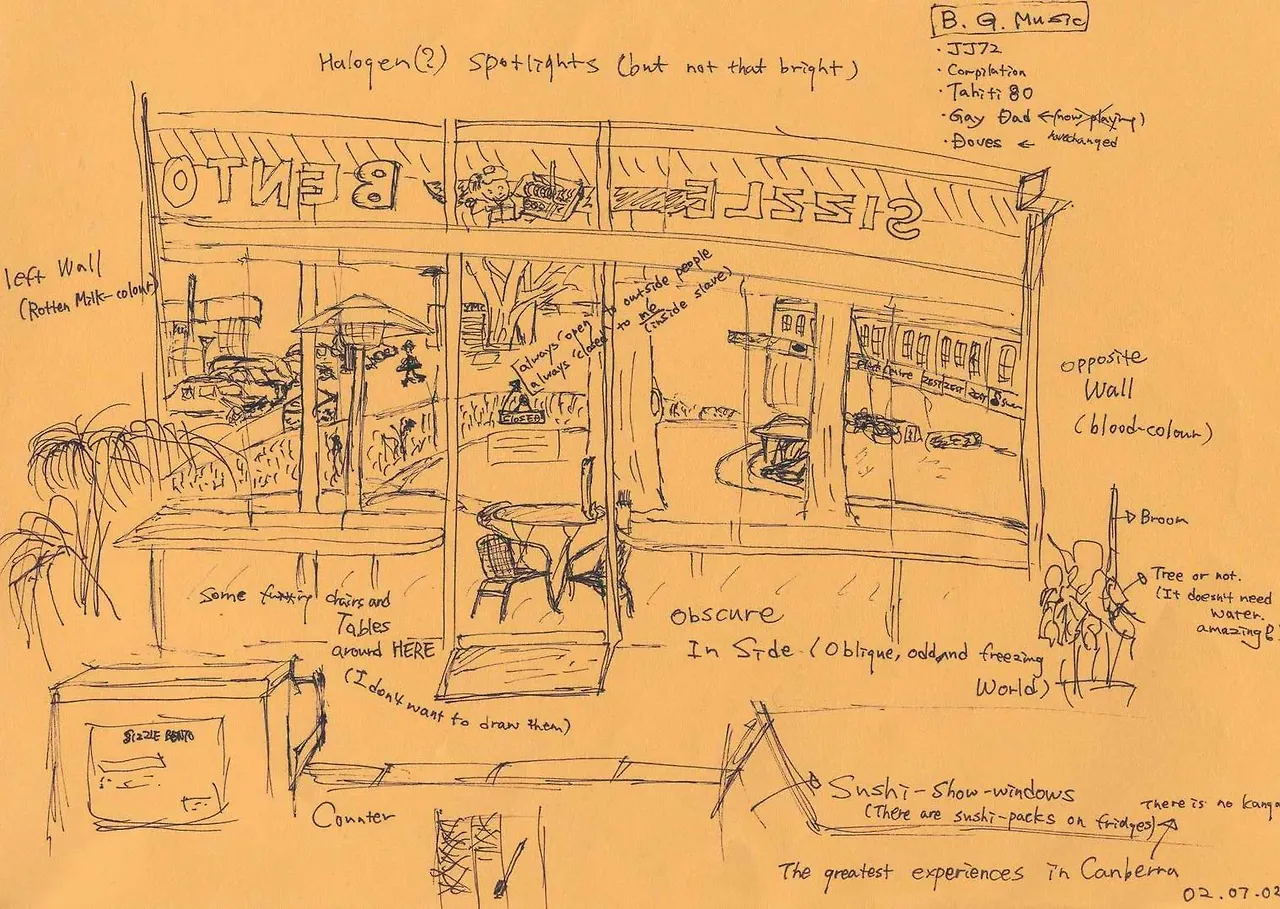 B. G. Music
· JJ72
· Compilation
· Tahiti 80
· Gay Dad ← (now playing)
· Doves ← changed
Halogen(?) Spotlights (but not that bright)
SIZZLE BENTO
left Wall
(Rotten Milk-colour)
always 'open' to outside people
always 'closed' to me
(inside slave)
CLOSED
opposite
Wall
(blood-colour)
Broom
Tree or not.
(It doesn't need
water.
amazing!
some chairs and
Tables
around HERE
(I don't want to draw them)
OBSCURE
In Side (Oblique, odd, and freezing
World)
SIZZLE BENTO
Counter
Sushi-Show-windows
(There are sushi-packs on fridges)
There is no kanga
The greatest experiences in Canberra
02.07.02